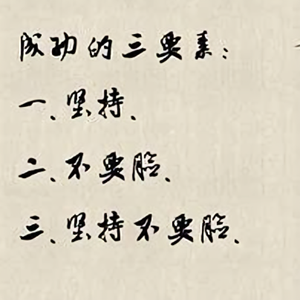 成功的三要素：
一、坚持、
二、不要脸、
三、坚持不要脸、